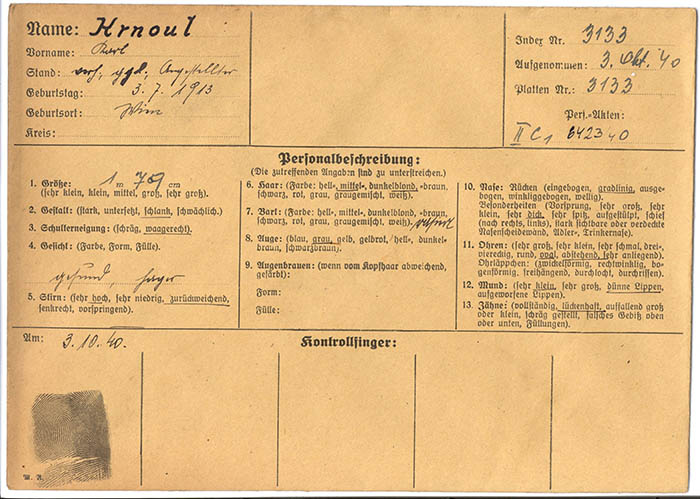 Name: Krnoul
Vorname: Karl
Stand: verh, ggl., Angestellter
Geburtstag: 3. 7. 1913
Geburtsort: Wien
Kreis:
Index Nr. 3133
Aufgenommen: 3. Okt. 40
Platten Nr.: 3133
Pers.-Akten:
II C1 6423 40
Personalbeschreibung:
(Die zutreffenden Angaben sind zu unterstreichen.)
1. Größe: 1 m 78 cm
(sehr klein, klein, mittel, groß, sehr groß).
2. Gestalt: (stark, untersetzt, schlank, schwächlich).
3. Schulterneigung: (schräg, waagerecht).
4. Gesicht: (Farbe, Form, Fülle).
gesund, hager
5. Stirn: (sehr hoch, sehr niedrig, zurückweichend,
senkrecht, vorspringend).
6. Haar: (Farbe: hell-, mittel-, dunkelblond, -braun,
schwarz, rot, grau, graugemischt, weiß).
7. Bart: (Farbe: hell-, mittel-, dunkelblond, -braun,
schwarz, rot, grau, graugemischt, weiß).
8. Auge: (blau, grau, gelb, gelbrot, hell-, dunkel-
braun, schwarzbraun).
9. Augenbrauen: (wenn vom Kopfhaar abweichend,
gefärbt):
Form:
Fülle:
10. Nase: Rücken (eingebogen, gradlinig, ausge-
bogen, winkliggebogen, wellig).
Besonderheiten (Vorsprung, sehr groß, sehr
klein, sehr dick, sehr spitz, aufgestülpt, schief
(nach rechts, links), stark sichtbare oder verdeckte
Nasenscheidewand, Adler-, Trinkernase).
11. Ohren: (sehr groß, sehr klein, sehr schmal, drei-,
viereckig, rund, oval, abstehend, sehr anliegend).
Ohrläppchen: (zwickelförmig, rechtwinklig, bo-
genförmig, freihängend, durchlocht, durchrissen).
12. Mund: (sehr klein, sehr groß, dünne Lippen,
aufgeworfene Lippen).
13. Zähne: (vollständig, lückenhaft, auffallend groß
oder klein, schräg gestellt, falsches Gebiß oben
oder unten, Füllungen).
Am: 3. 10. 40.
Kontrollfinger:
M. R.